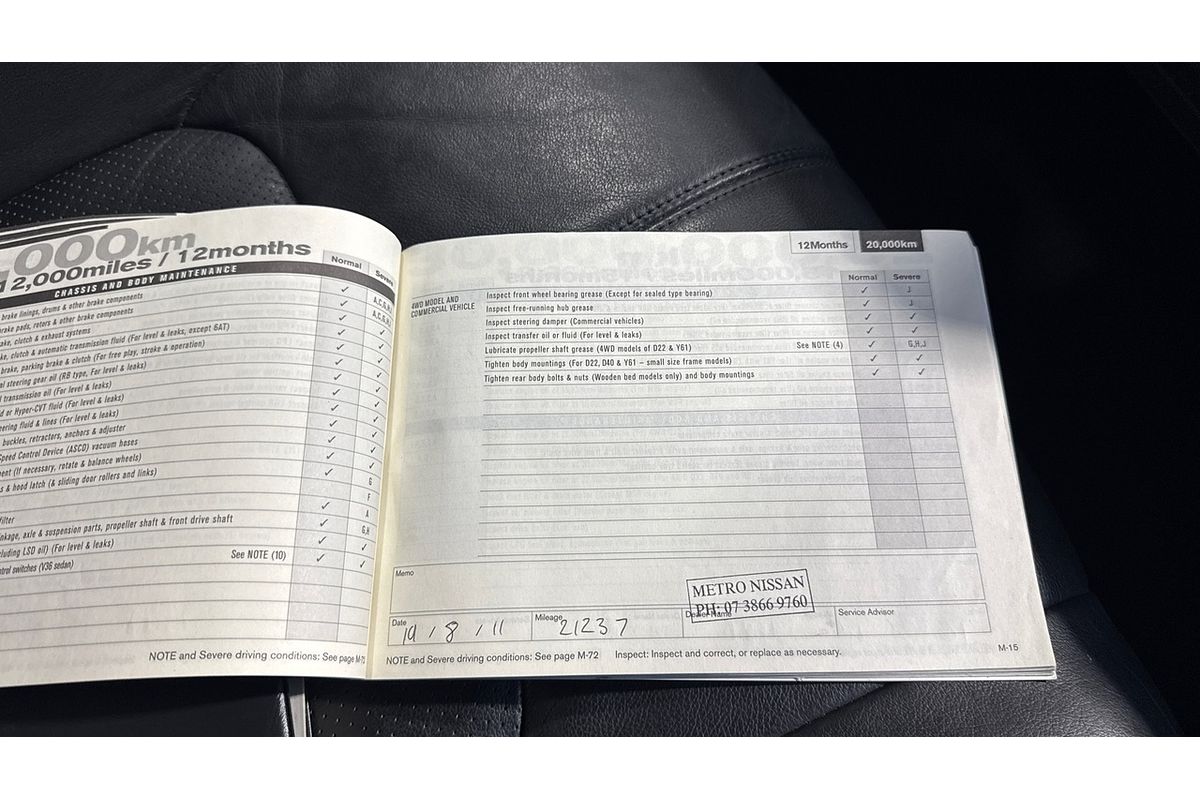 ,000km
12,000miles / 12months
CHASSIS AND BODY MAINTENANCE
Normal Severe
brake linings, drums & other brake components ✓ A,C,G,H,
brake pads, rotors & other brake components ✓ A,C,G,H,
brake, clutch & exhaust systems ✓ ✓
clutch & automatic transmission fluid (For level & leaks, except 6AT) ✓ ✓
brake, parking brake & clutch (For free play, stroke & operation) ✓ ✓
steering gear oil (RB type, For level & leaks) ✓ ✓
transmission oil (For level & leaks) ✓ ✓
or Hyper-CVT fluid (For level & leaks) ✓ ✓
fluid & lines (For level & leaks) ✓ ✓
buckles, retractors, anchors & adjuster ✓ ✓
Speed Control Device (ASCD) vacuum hoses ✓ ✓
(If necessary, rotate & balance wheels) ✓ ✓
& hood latch (& sliding door rollers and links) ✓ G
F
filter ✓ A
axle & suspension parts, propeller shaft & front drive shaft ✓ G,H
LSD oil) (For level & leaks) ✓ ✓
switches (V36 sedan) See NOTE (10) ✓ ✓
NOTE and Severe driving conditions: See page M-72
12Months 20,000km
Normal Severe
4WD MODEL AND
COMMERCIAL VEHICLE
Inspect front wheel bearing grease (Except for sealed type bearing) ✓ J
Inspect free-running hub grease ✓ J
Inspect steering damper (Commercial vehicles) ✓ ✓
Inspect transfer oil or fluid (For level & leaks) ✓ ✓
Lubricate propeller shaft grease (4WD models of D22 & Y61) See NOTE (4) ✓ G,H,J
Tighten body mountings (For D22, D40 & Y61 – small size frame models) ✓ ✓
Tighten rear body bolts & nuts (Wooden bed models only) and body mountings ✓ ✓
Memo
METRO NISSAN
PH: 07 3866 9760
Date 19 / 8 / 11 Mileage 21237 Dealer Name Service Advisor
NOTE and Severe driving conditions: See page M-72 Inspect: Inspect and correct, or replace as necessary.
M-15